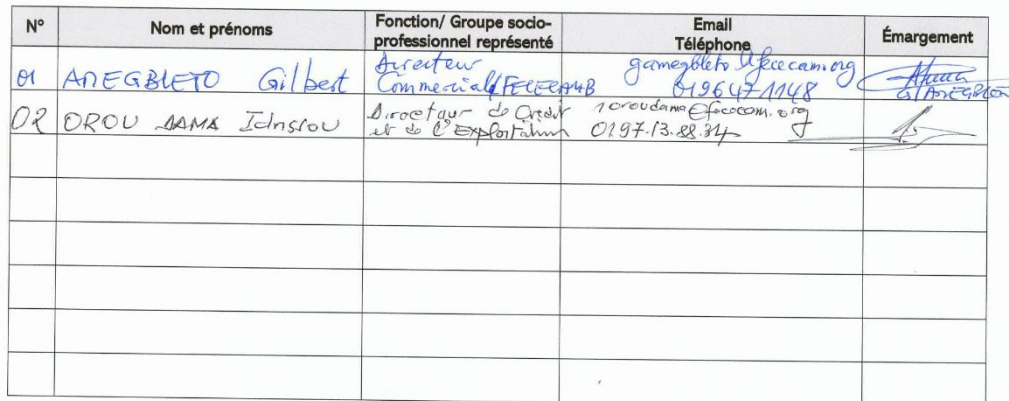 N° Nom et prénoms Fonction/ Groupe socio-professionnel représenté Email Téléphone Émargement
01 AMEGBLETO Gilbert Directeur Commercial/FECECAM B gamegbleto@fececam.org 0196471148 G/AMEGBLETO
02 OROU DAMA Idrissou Directeur de Crédit et de l'Exploitation ioroudama@fececam.org 0197.13.88.34